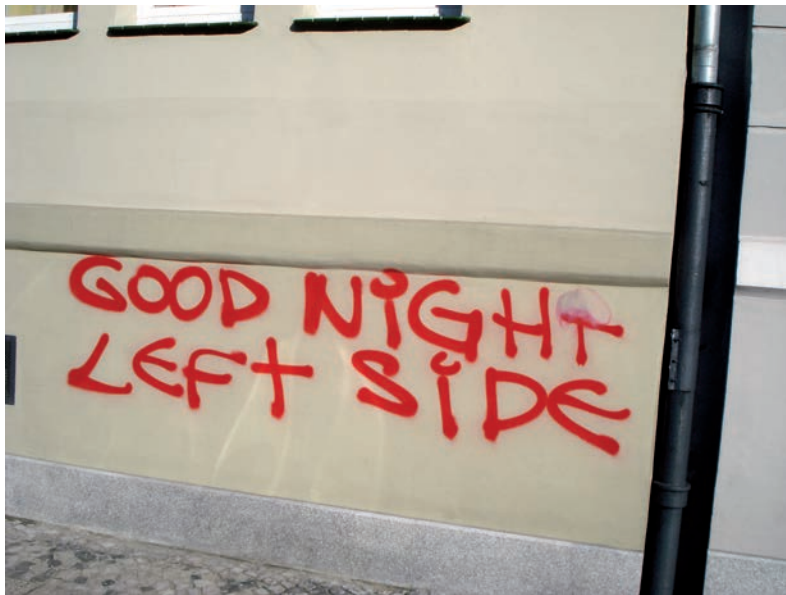 GOOD NiGHT
LEFT SiDE